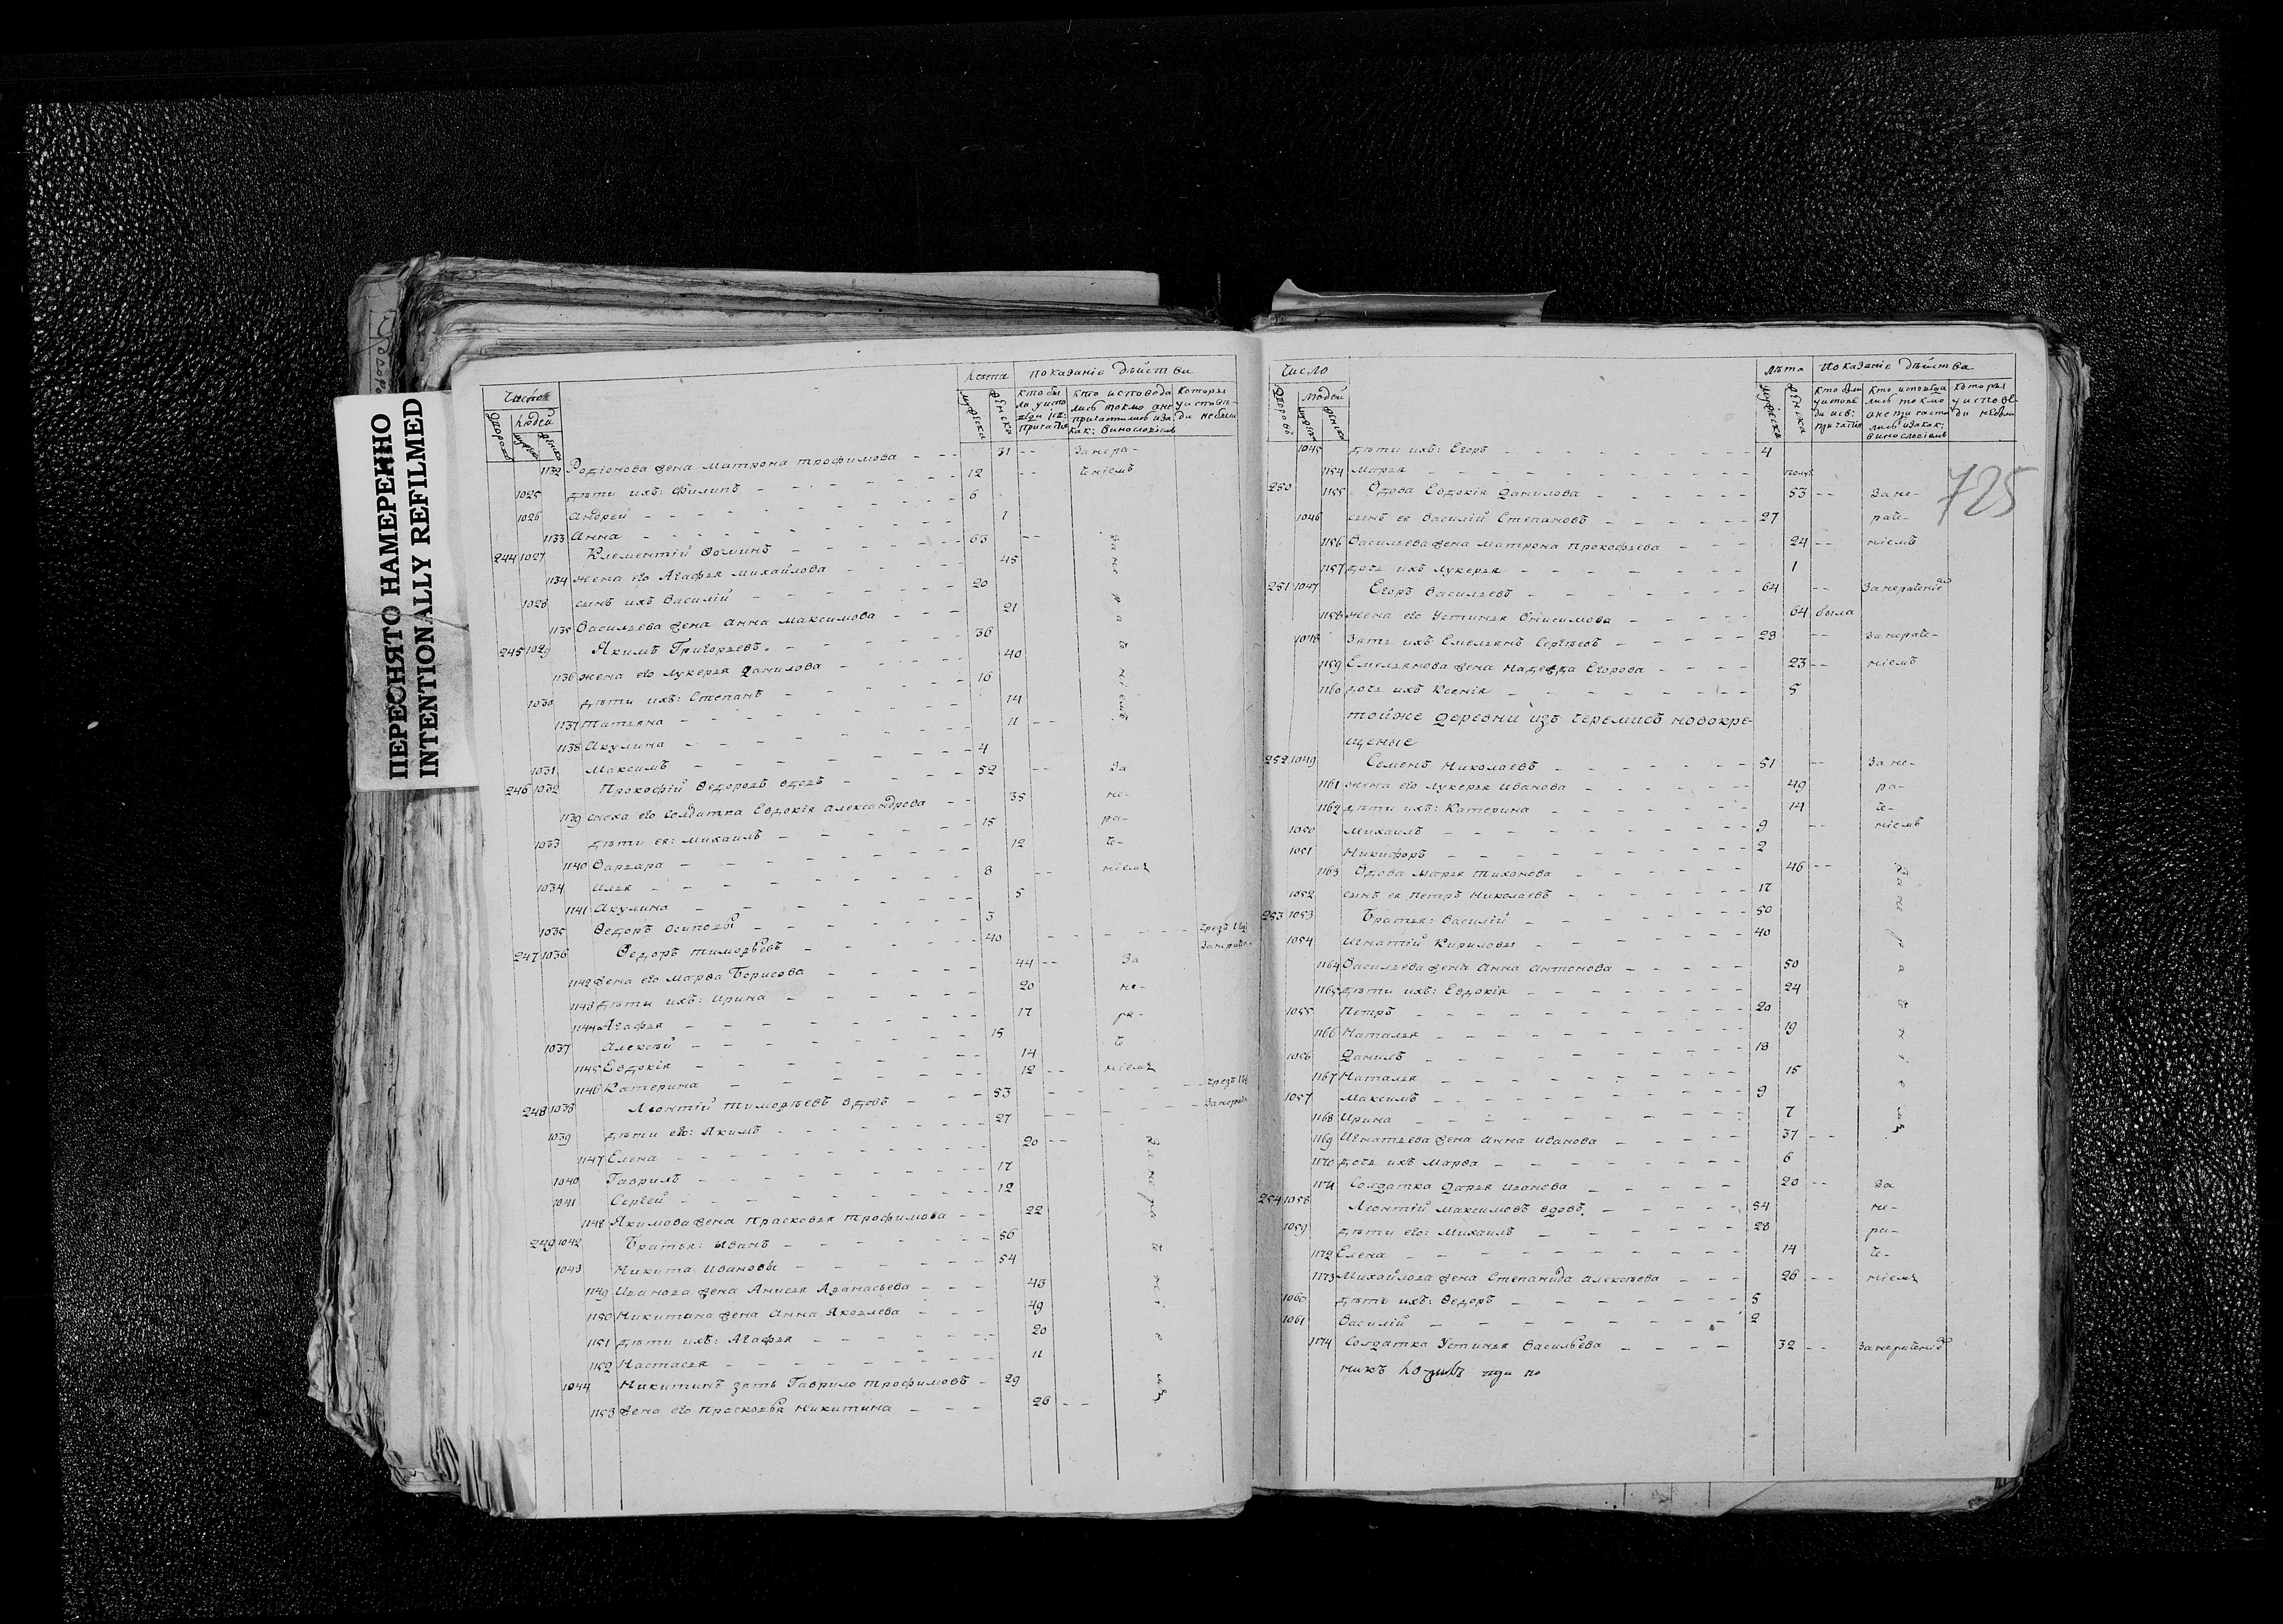 ПЕРЕСНЯТО НАМЕРЕННО
INTENTIONALLY REFILMED
Число лѣта показаніе дѣйства
дворовъ людей мужеска женска
1132 Родіонова жена Матрона Трофимова 31 Занера-
1025 дѣти ихъ: Филипъ 12 ченіемъ
1026 Андрей 6
1133 Анна 1
244 1027 Клементій Фоминъ 63
1134 жена его Агафья Михайлова 45
1028 сынъ ихъ Василій 20
1135 Васильева жена Анна Максимова 21
245 1029 Якимъ Григорьевъ 36
1136 жена его Лукерья Данилова 40
1030 дѣти ихъ: Степанъ 16
1137 Татьяна 14
1138 Акулина 11
1031 Максимъ 4
246 1032 Прокофій Ѳедоровъ вдовъ 52 За
1139 сноха его солдатка Евдокія Александрова 35 не-
1033 дѣти ея: Михаилъ 15 ра-
1140 Варвара 12 че-
1034 Илья 8 ніемъ
1141 Акулина 5
1035 Ѳедоръ Осиповы 3
247 1036 Ѳедоръ Тимофѣевъ 40
1142 жена его Марва Борисова 44 За
1143 дѣти ихъ: Ирина 20 не-
1144 Агафья 17 ра-
1037 Алексѣй 15 че
1145 Евдокія 14
1146 Катерина 12 ніемъ
248 1038 Леонтій Тимофѣевъ вдовъ 53
1039 дѣти его: Якимъ 27
1147 Елена 20
1040 Гаврилъ 17
1041 Сергѣй 12
1148 Якимова жена Прасковья Трофимова 22
249 1042 Братья: Иванъ 56
1043 Никита Ивановы 54
1149 Иванова жена Анисья Аѳанасьева 43
1150 Никитина жена Анна Яковлева 49
1151 дѣти ихъ: Агафья 20
1152 Настасья 11
1044 Никитинъ зять Гаврило Трофимовъ 29
1153 жена его Прасковья Никитина 26
Число лѣта показаніе дѣйства
дворовъ людей мужеска женска
725
1045 дѣти ихъ: Егоръ 4
1154 Марья полу
250 1155 Вдова Евдокія Данилова 53 Зане-
1046 сынъ ея Василій Степановъ 27 раче-
1156 Васильева жена Матрона Прокофьева 24 ніемъ
1157 дочь ихъ Лукерья 1
251 1047 Егоръ Васильевъ 64 Занераченіе
1158 жена его Устинья Онисимова 64 была
1048 Зять ихъ Емельянъ Сергѣевъ 28 Занераче-
1159 Емельянова жена Надежда Егорова 23 ніемъ
1160 дочь ихъ Ксенія 5
тойже деревни изъ черемисъ новокре-
щеные
252 1049 Семенъ Николаевъ 51 Зане-
1161 жена его Лукерья Иванова 49 ра-
1162 дѣти ихъ: Катерина 14 че-
1050 Михаилъ 9 ніемъ
1051 Никифоръ 2
1163 Вдова Марья Тихонова 46
1052 сынъ ея Петръ Николаевъ 17
253 1053 Братья: Василій 50
1054 Игнатій Кириловы 40
1164 Васильева жена Анна Антонова 50
1165 дѣти ихъ: Евдокія 24
1055 Петръ 20
1166 Наталья 19
1056 Данилъ 18
1167 Наталья 15
1057 Максимъ 9
1168 Ирина 7
1169 Игнатьева жена Анна Иванова 37
1170 дочь ихъ Марва 6
1171 Солдатка Дарья Иванова 20 За
254 1058 Леонтій Максимовъ вдовъ 54 не-
1059 дѣти его: Михаилъ 28 ра-
1172 Елена 14 че-
1173 Михайлова жена Степанида Алексѣева 26 ніемъ
1060 дѣти ихъ: Ѳедоръ 5
1061 Василій 2
1174 Солдатка Устинья Васильева 32